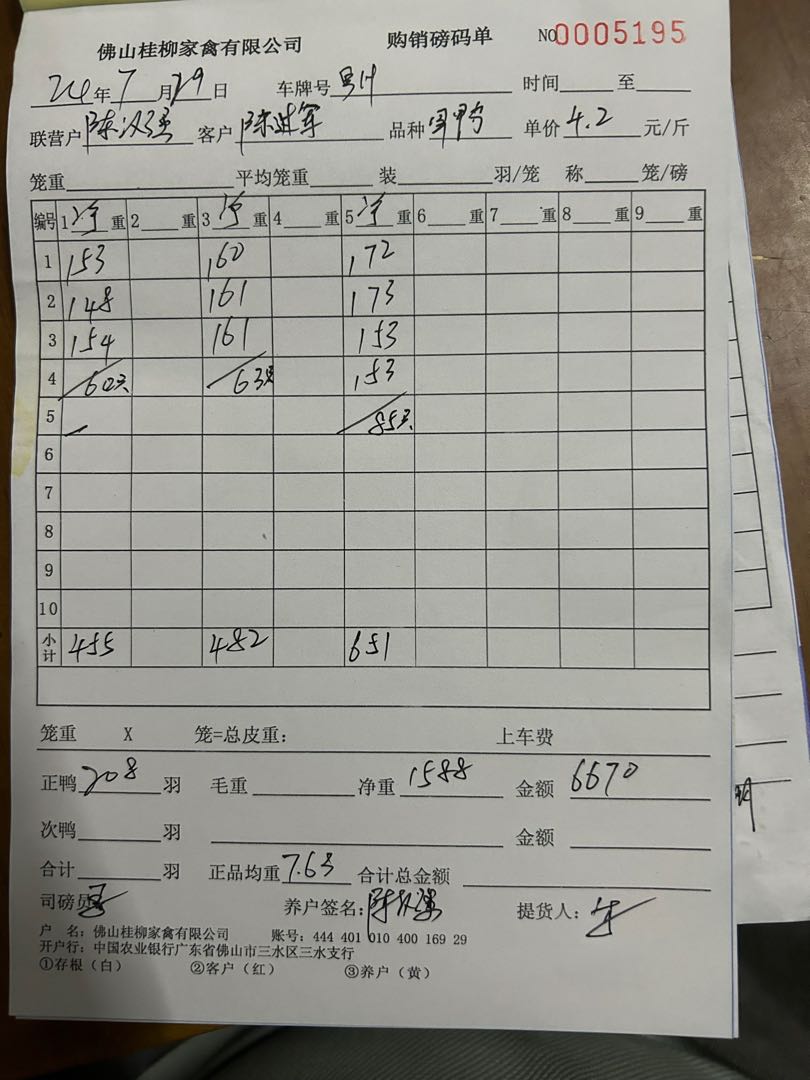 佛山桂柳家禽有限公司 购销磅码单 NO0005195
24年7月29日 车牌号 时间 至
联营户 陈汉强 客户 陈进军 品种 单价4.2元/斤
笼重 平均笼重 装 羽/笼 称 笼/磅
编号 1净重 2重 3净重 4重 5净重 6重 7重 8重 9重
1 153 160 172
2 148 161 173
3 154 161 153
4 60只 63只 153
5 85只
6
7
8
9
10
小计 455 482 651
笼重 X 笼=总皮重: 上车费
正鸭208羽 毛重 净重1588 金额6670
次鸭 羽 金额
合计 羽 正品均重7.63 合计总金额
司磅员 养户签名:陈汉强 提货人:
户 名: 佛山桂柳家禽有限公司 账号: 444 401 010 400 169 29
开户行: 中国农业银行广东省佛山市三水区三水支行
①存根(白) ②客户(红) ③养户(黄)